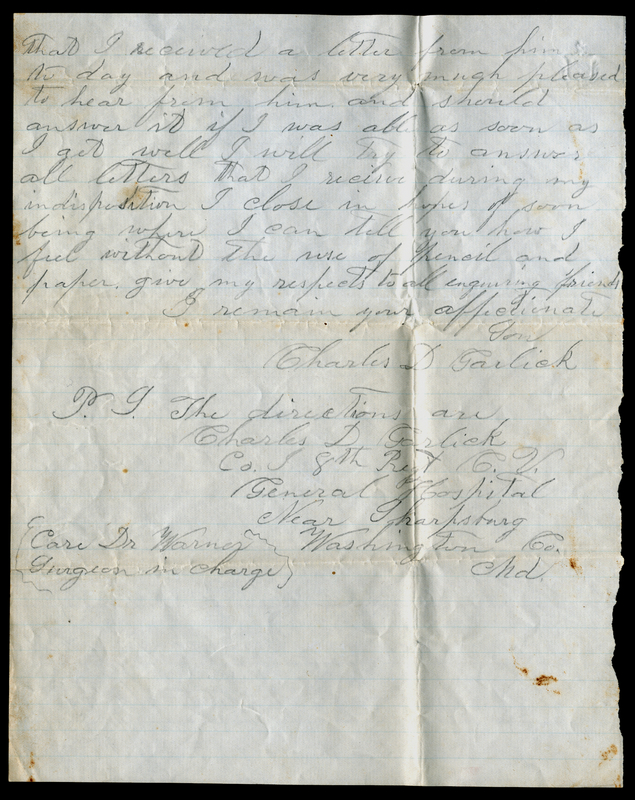 that I received a letter from him
to day and was very mugh pleased
to hear from him. and should
answer it if I was able as soon as
I get well I will try to answer
all letters that I recieve during my
indisposition I close in hopes of soon
being where I can tell you how I
feel without the use of pencil and
paper. give my respects to all enquiring friends
I remain your affectionate
Son
Charles D Garlick
P. S. The directions are
Charles D Garlick
Co. I 8th Regt C. V.
General Hospital
Near Sharpsburg
Washington Co.
Md
Care Dr Warner
Surgeon in charge